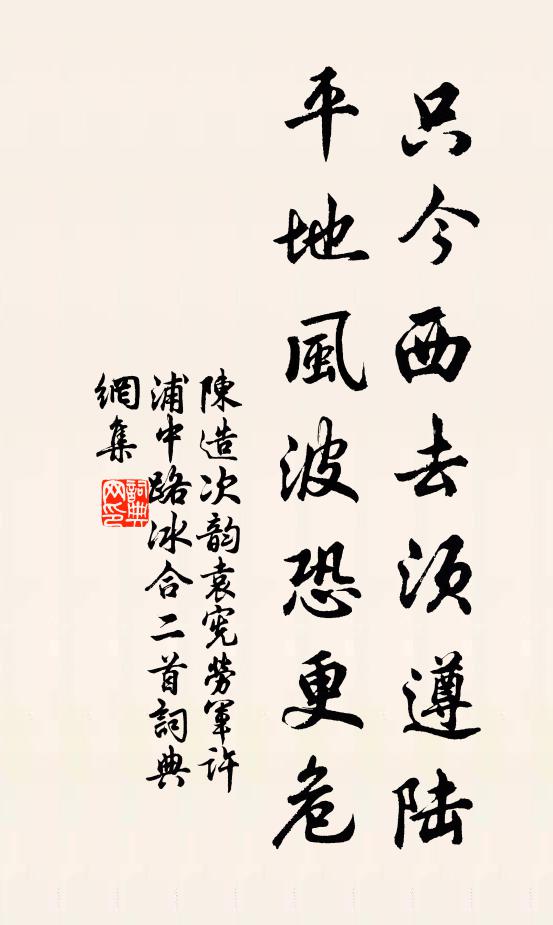 只今西去须遵陆
平地風波恐更危
陳造次韵袁宪勞軍许
浦中路冰合二首詞典
網集
詞典網印